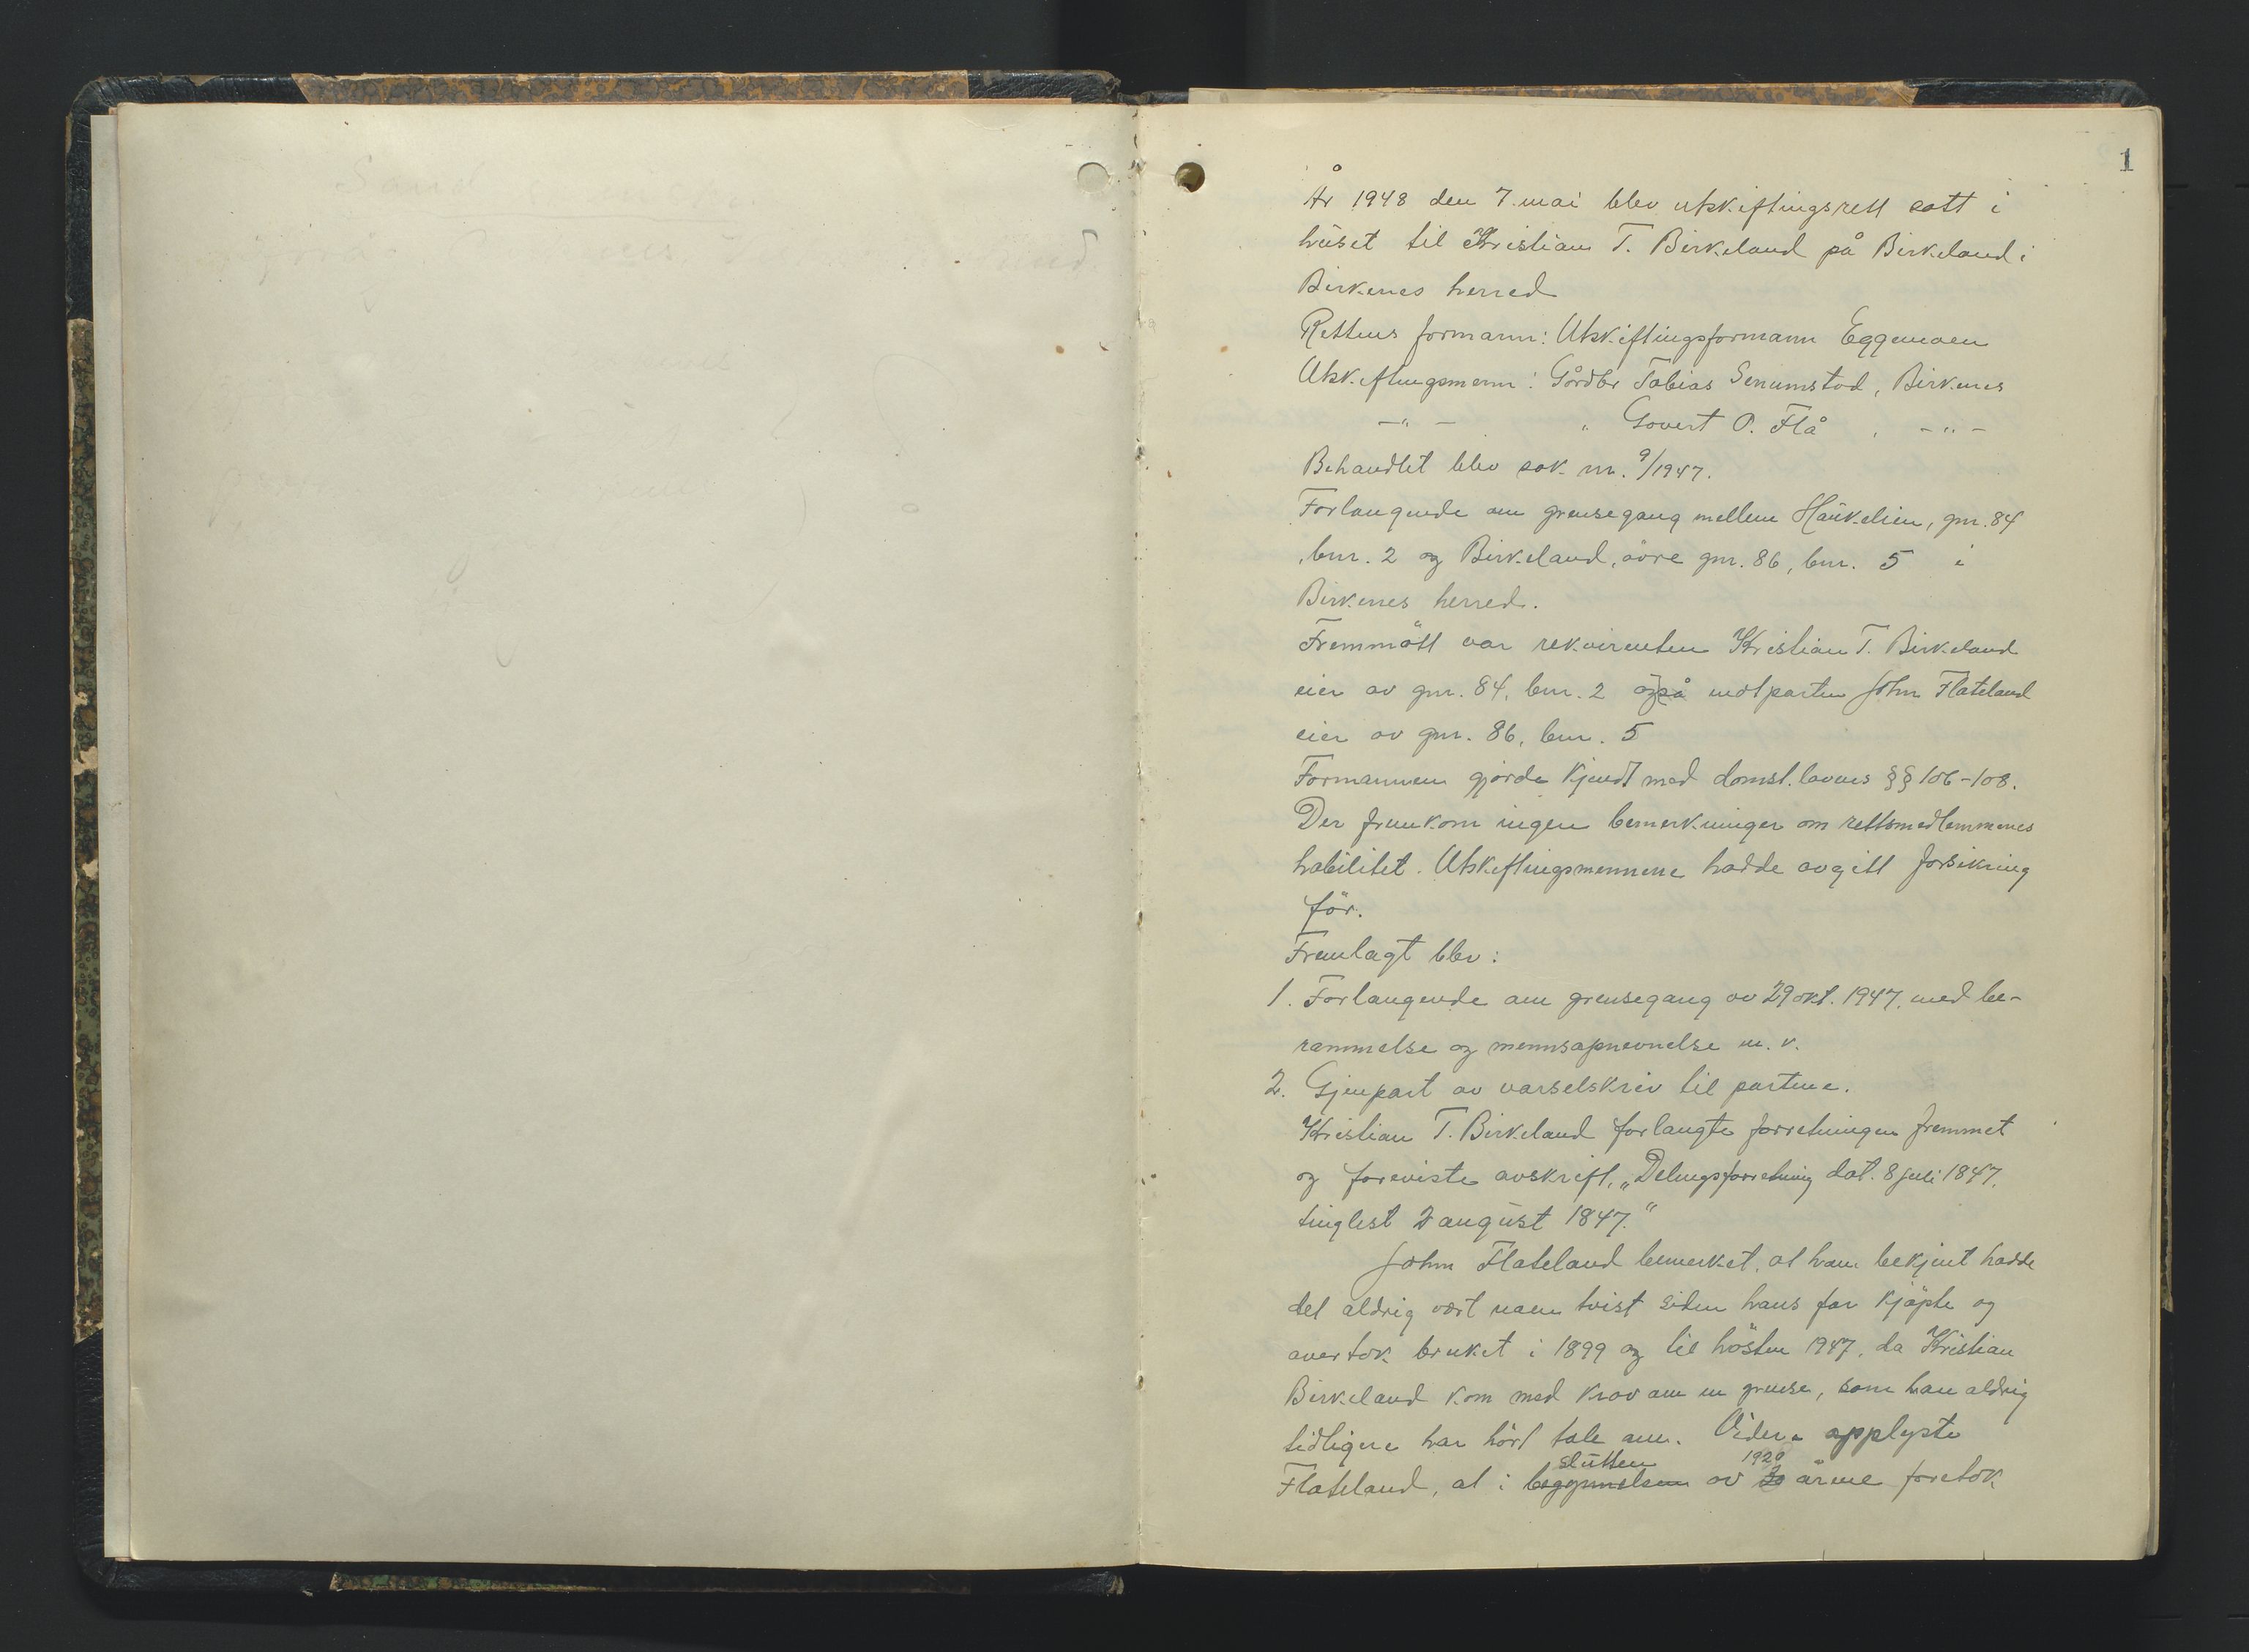 1
År 1948 den 7. mai blev utskiftingsrett satt i
huset til Kristian T. Birkeland på Birkeland i
Birkenes herred
Rettens formann: Utskiftingsformann Eggemoen
Utskiftingsmenn: Gårdbr Tobias Senumstad, Birkenes
—"— " Govert O. Flå , -"-
Behandlet blev sak nr. 9/1947.
Forlangende om grensegang mellem Haukelien, gnr. 84
, bnr. 2 og Birkeland, övre gnr. 86, bnr. 5 i
Birkenes herred.
Fremmött var rekvirenten Kristian T. Birkeland
eier av gnr. 84, bnr. 2 også motparten John Flateland
eier av gnr. 86, bnr. 5
Formannen gjorde kjendt med domst. lovens §§ 106-108.
Der fremkom ingen bemerkninger om rettsmedlemmenes
habilitet. Utskiftingsmennene hadde avgitt forsikring
för.
Fremlagt blev:
1. Forlangende om grensegang av 29 okt. 1947, med be-
rammelse og mennsopnevnelse m. v.
2. Gjenpart av varselskriv til partene.
Kristian T. Birkeland forlangte forretningen fremmet
og foreviste avskrift, „Delingsforretning dat. 8 juli 1847,
tinglest 2 august 1847."
John Flateland bemerket, at ham bekjent hadde
det aldrig vært noen tvist siden hans far kjöpte og
overtok bruket i 1899 og til hösten 1947, da Kristian
Birkeland kom med krav om en grense, som han aldrig
tidligere har hört tale om. Videre opplyste
slutten 1920
Flateland, at i begynnelsen av årene foretok